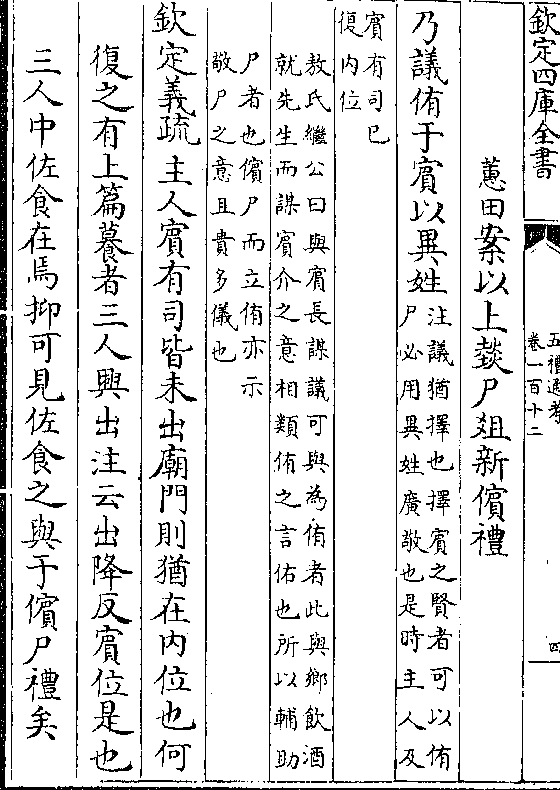 欽定四庫全書
五禮通考
卷一百十二
四
蕙田案以上燅尸俎新儐禮
乃議侑于賓以異姓
注議猶擇也擇賓之賢者可以侑
尸必用異姓廣敬也是時主人及
賓有司已
復内位
敖氏繼公曰與賓長謀議可與為侑者此與鄉飲酒
就先生而謀賓介之意相類侑之言佑也所以輔助
尸者也儐尸而立侑亦示
敬尸之意且貴多儀也
欽定義疏主人賓有司皆未出廟門則猶在内位也何
復之有上篇養者三人興出注云出降反賓位是也
三人中佐食在焉抑可見佐食之與于儐尸禮矣